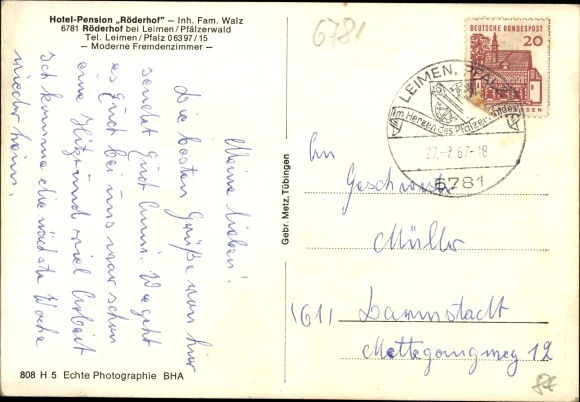 Hotel-Pension „Röderhof" — Inh. Fam. Walz
6781 Röderhof bei Leimen/Pfälzerwald
Tel. Leimen/Pfalz 06397/15
— Moderne Fremdenzimmer —
6781
DEUTSCHE BUNDESPOST
20
LEIMEN, PFALZ
Im Herzen des Pfälzerwaldes
27.-7.67-18
6781
Meine Lieben!
Die besten Grüße von hier
sendet Euch Anni. Wie geht
es Euch bei uns war schon
eine Hitze und viel Arbeit
Ich komme die nächste Woche
wieder heim.
An
Geschwister
Müller
(61) Darmstadt
12
Gebr. Metz, Tübingen
808 H 5 Echte Photographie BHA